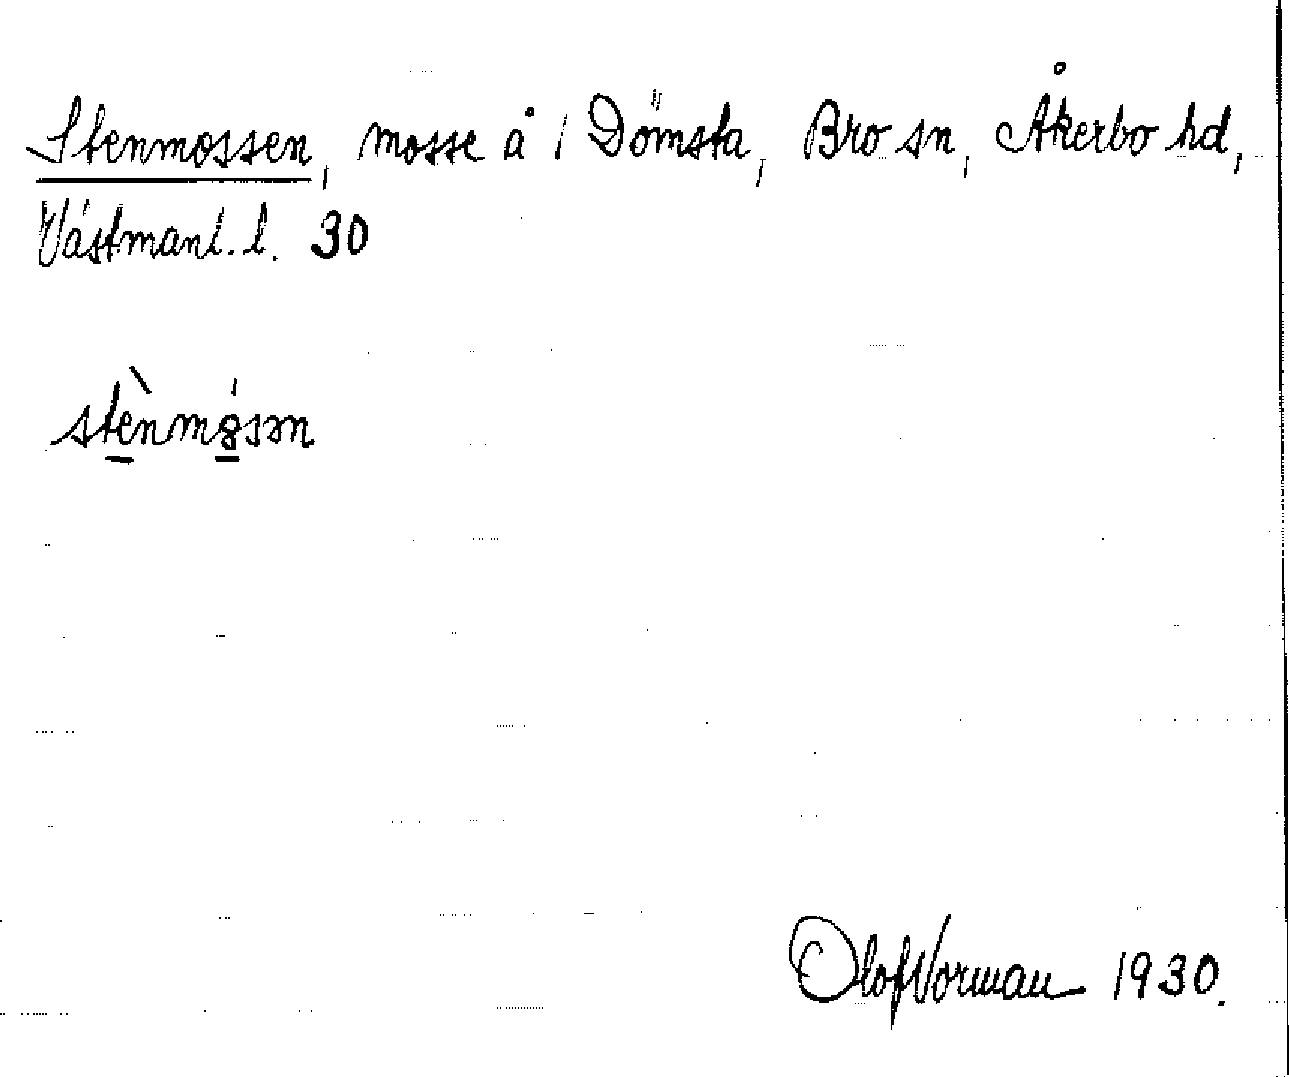 Stenmossen, mosse å / Dömsta, Bro sn, Åkerbo hd,
Västmanl. l. 30
stènmósən
Olof Norman 1930.